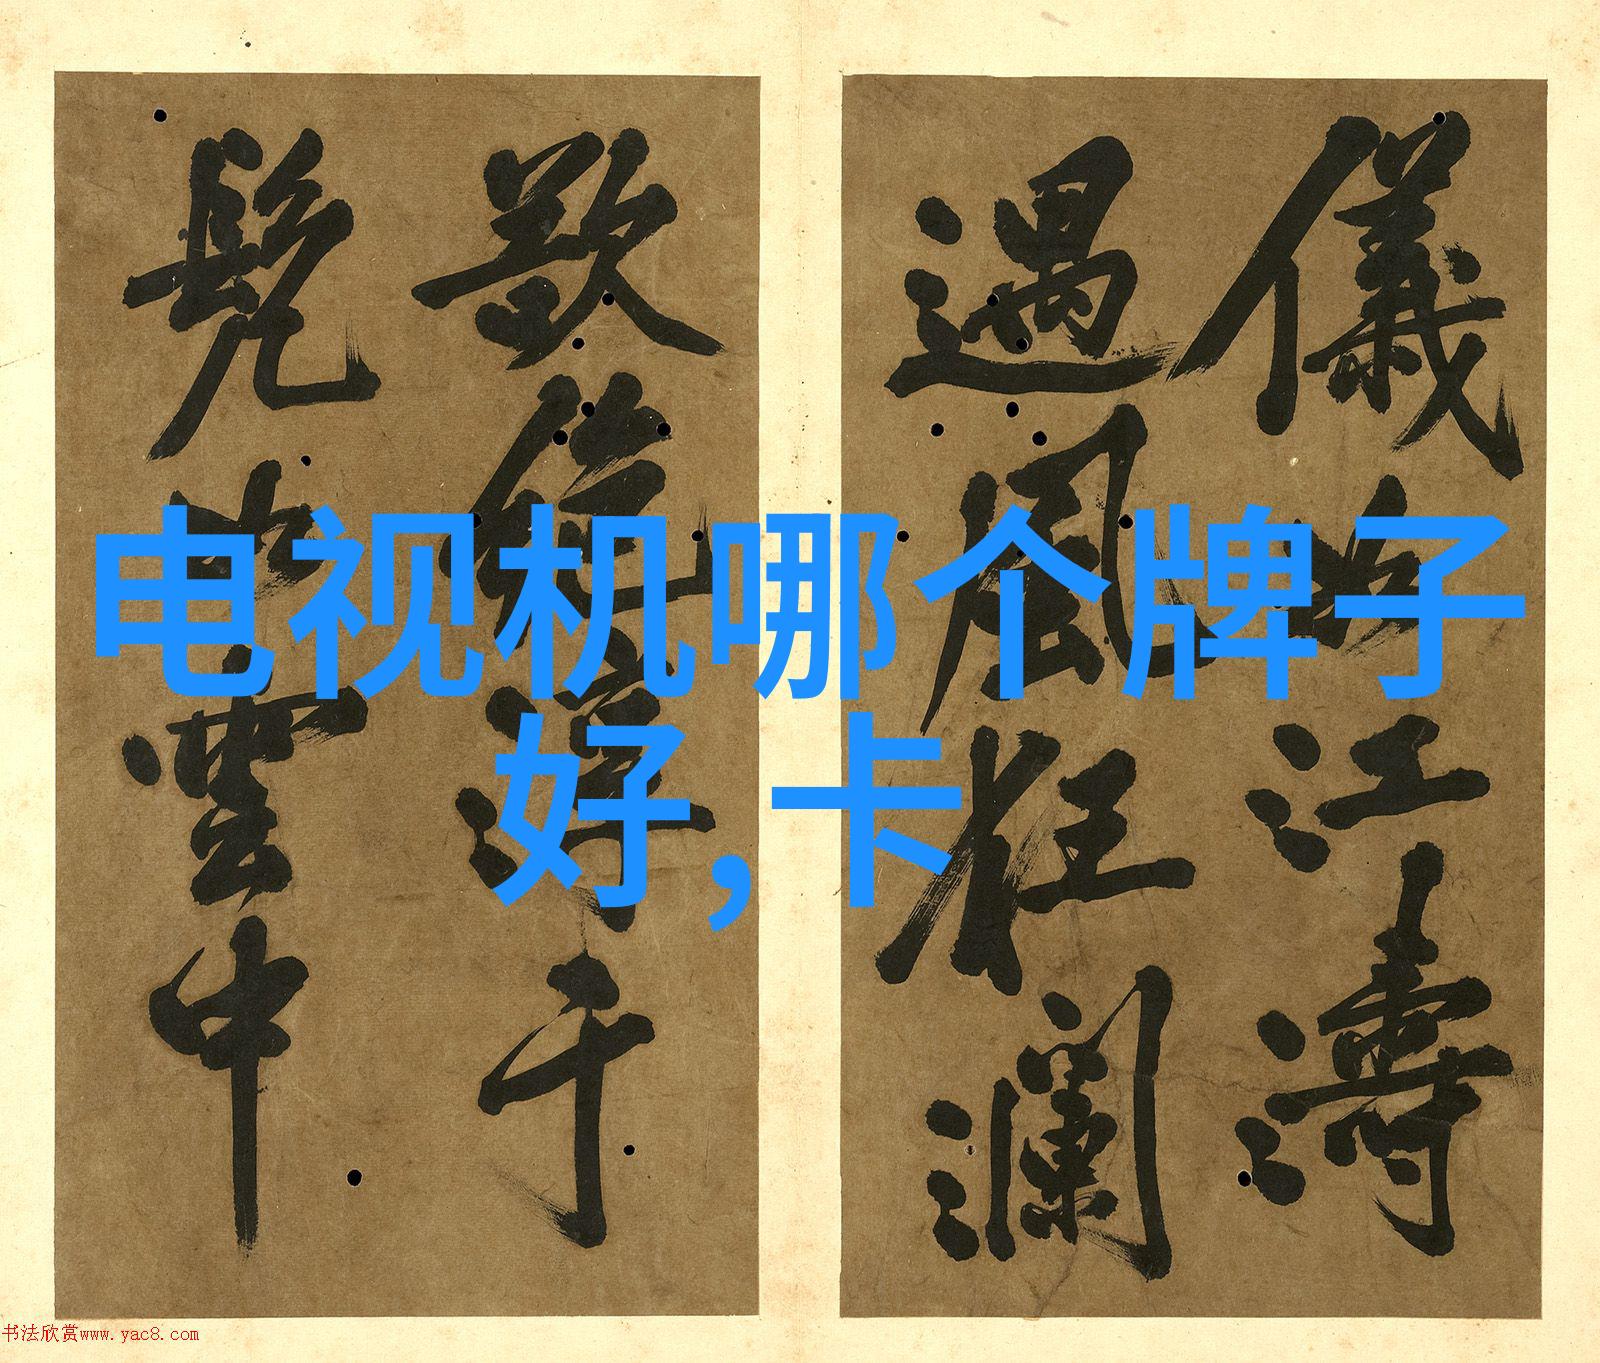 電视机哪个牌子
好,卡
儀
江濤
遏風狂瀾
欲
于
髡
雲中
书法欣赏www.yac8.com